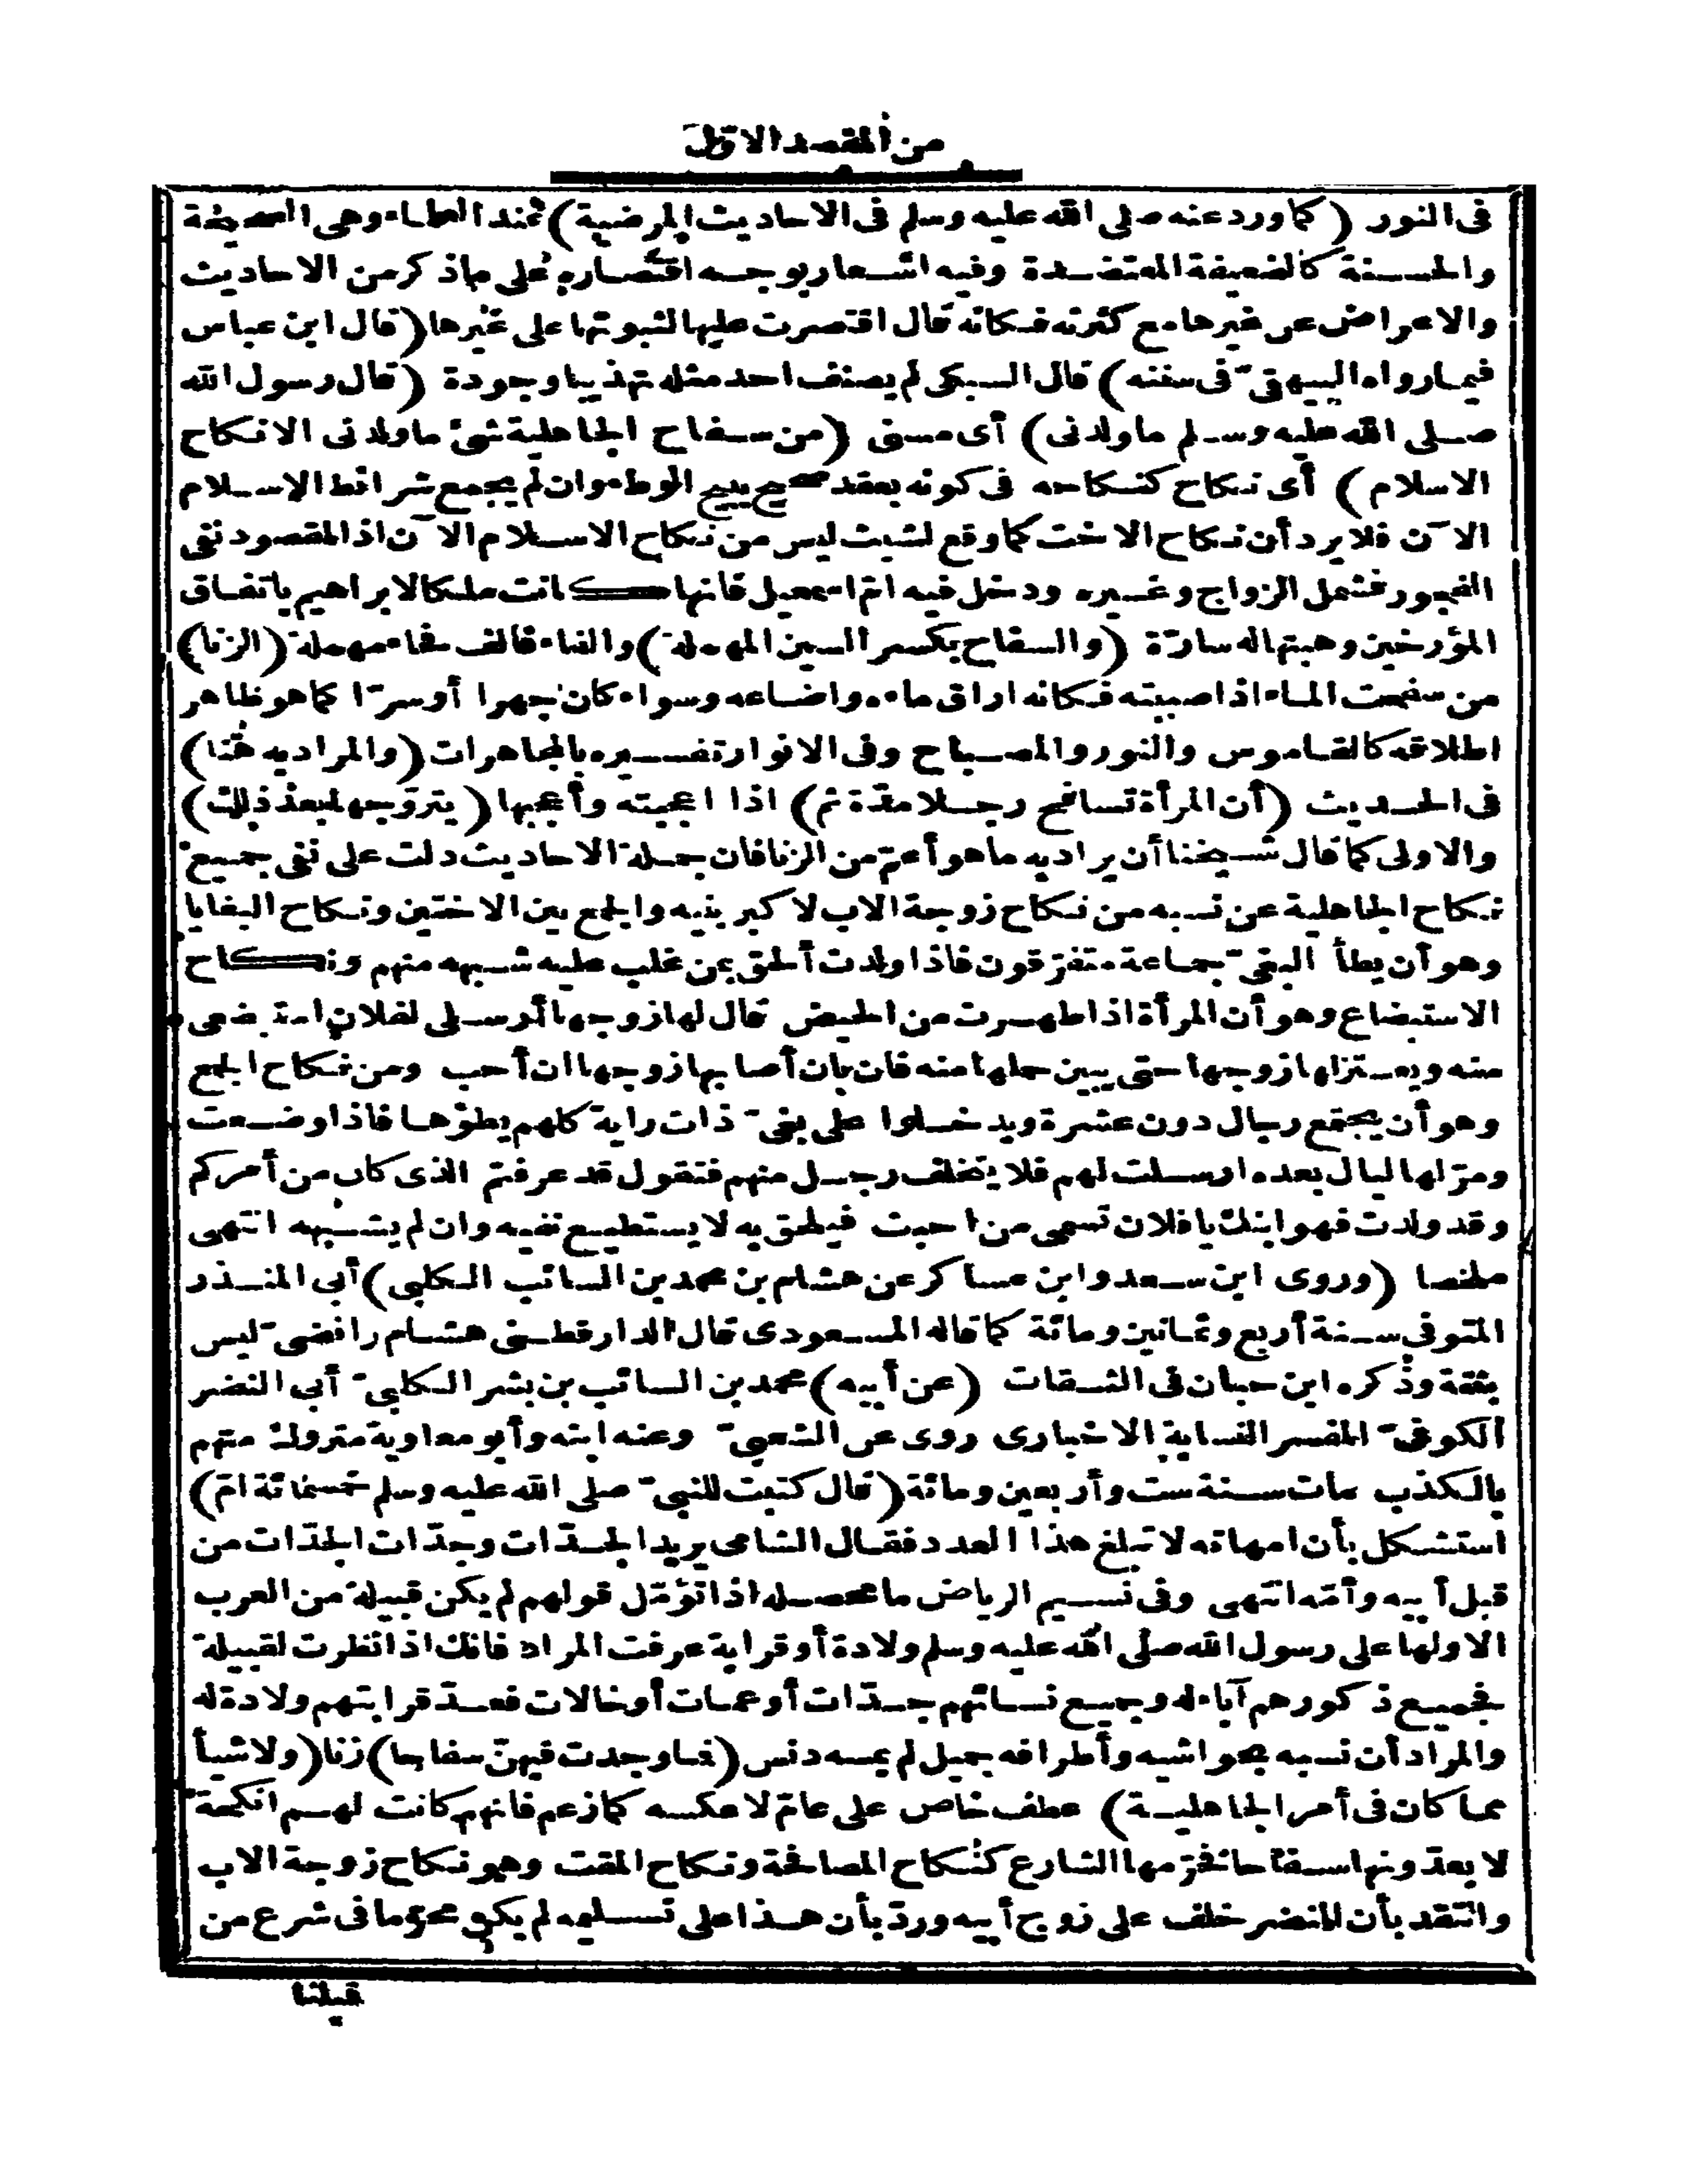 من المقصد الاول
فى النور (كما ورد عنه صلى الله عليه وسلم فى الاحاديث المرضية) عند العلماء وهى الصحيحة
والحسنة كالضعيفة المعتضدة وفيه اشعار بوجه اقتصاره على ما ذكر من الاحاديث
والاعراض عن غيرها مع كثرته فكانه قال اقتصرت عليها لثبوتها على غيرها (قال ابن عباس
فيما رواه البيهقىّ فى سننه) قال السبكى لم يصنف احد مثله تهذيبا وجودة (قال رسول الله
صلى الله عليه وسلم ما ولدنى) أى مسنى (من سفاح الجاهلية شئ ما ولدنى الا نكاح
الاسلام) أى نكاح كنكاحه فى كونه بعقد صحيح يبيح الوطء وان لم يجمع شرائط الاسلام
الآن فلا يرد أن نكاح الاخت كما وقع لشيث ليس من نكاح الاسلام الآن اذ المقصود نفى
الفجور فشمل الزواج وغيره ودخل فيه امّ اسمعيل فانها كانت ملكا لابراهيم باتفاق
المؤرخين وهبتها له سارّة (والسفاح بكسر السين المهملة) والفاء فالف فحاء مهملة (الزنا)
من سفحت الماء اذا صببته فكانه اراق ماءه واضاعه وسواء كان جهرا أو سرّا كما هو ظاهر
اطلاقه كالقاموس والنور والمصباح وفى الانوار تفسيره بالمجاهرات (والمراد به هنا)
فى الحديث (أن المرأة تسافح رجلا مدّة ثم) اذا اعجبته وأعجبها (يتزوّجها بعد ذلك)
والاولى كما قال شيخنا أن يراد به ما هو أعمّ من الزنا فان جملة الاحاديث دلت على نفى جميع
نكاح الجاهلية عن نسبه من نكاح زوجة الاب لاكبر بنيه والجمع بين الاختين ونكاح البغايا
وهو أن يطأ البغىّ جماعة متفرّقون فاذا ولدت ألحق بمن غلب عليه شبهه منهم ونكاح
الاستبضاع وهو أن المرأة اذا طهرت من الحيض قال لها زوجها أرسلى لفلان استبضعى
منه ويعتزلها زوجها حتى يبين حملها منه فان بان أصابها زوجها ان أحب ومن نكاح الجمع
وهو أن يجتمع رجال دون عشرة ويدخلوا على بغىّ ذات راية كلهم يطؤها فاذا وضعت
ومرّ لها ليال بعده ارسلت لهم فلا يتخلف رجل منهم فتقول قد عرفتم الذى كان من أمركم
وقد ولدت فهو ابنك يا فلان تسمى من احبت فيلحق به لا يستطيع نفيه وان لم يشبهه انتهى
ملخصا (وروى ابن سعد وابن عساكر عن هشام بن محمد بن السائب الكلبى) أبى المنذر
المتوفى سنة أربع وثمانين ومائة كما قاله المسعودى قال الدارقطنى هشام رافضىّ ليس
بثقة وذكره ابن حبان فى الثقات (عن أبيه) محمد بن السائب بن بشر الكلبىّ أبى النضر
الكوفىّ المفسر النسابة الاخبارى روى عن الشعبىّ وعنه ابنه وأبو معاوية متروك متهم
بالكذب مات سنة ست وأربعين ومائة (قال كتبت للنبىّ صلى الله عليه وسلم خسمائة امّ)
استشكل بأن امهاته لا تبلغ هذا العدد فقال الشامى يريد الجدّات وجدّات الجدّات من
قبل أبيه وأمّه انتهى وفى نسيم الرياض ما محصله اذا تؤمّل قولهم لم يكن قبيلة من العرب
الا ولها على رسول الله صلى الله عليه وسلم ولادة أو قرابة عرفت المراد فانك اذا نظرت لقبيلة
فجميع ذكورهم آباء له وجميع نسائهم جدّات أو عمات أو خالات فعدّ قرابتهم ولادة له
والمراد أن نسبه بحواشيه وأطرافه جميل لم يمسه دنس (فما وجدت فيهنّ سفاحا) زنا (ولا شيأ
مما كان فى أمر الجاهلية) عطف خاص على عامّ لا عكسه كما زعم فانهم كانت لهم انكحة
لا يعدّونها سفاحا فحرّمها الشارع كنكاح المصافحة ونكاح المقت وهو نكاح زوجة الاب
وانتقد بأن النضر خلف على زوج أبيه وردّ بأن هذا على تسليمه لم يكن محرّما فى شرع من
قبلنا